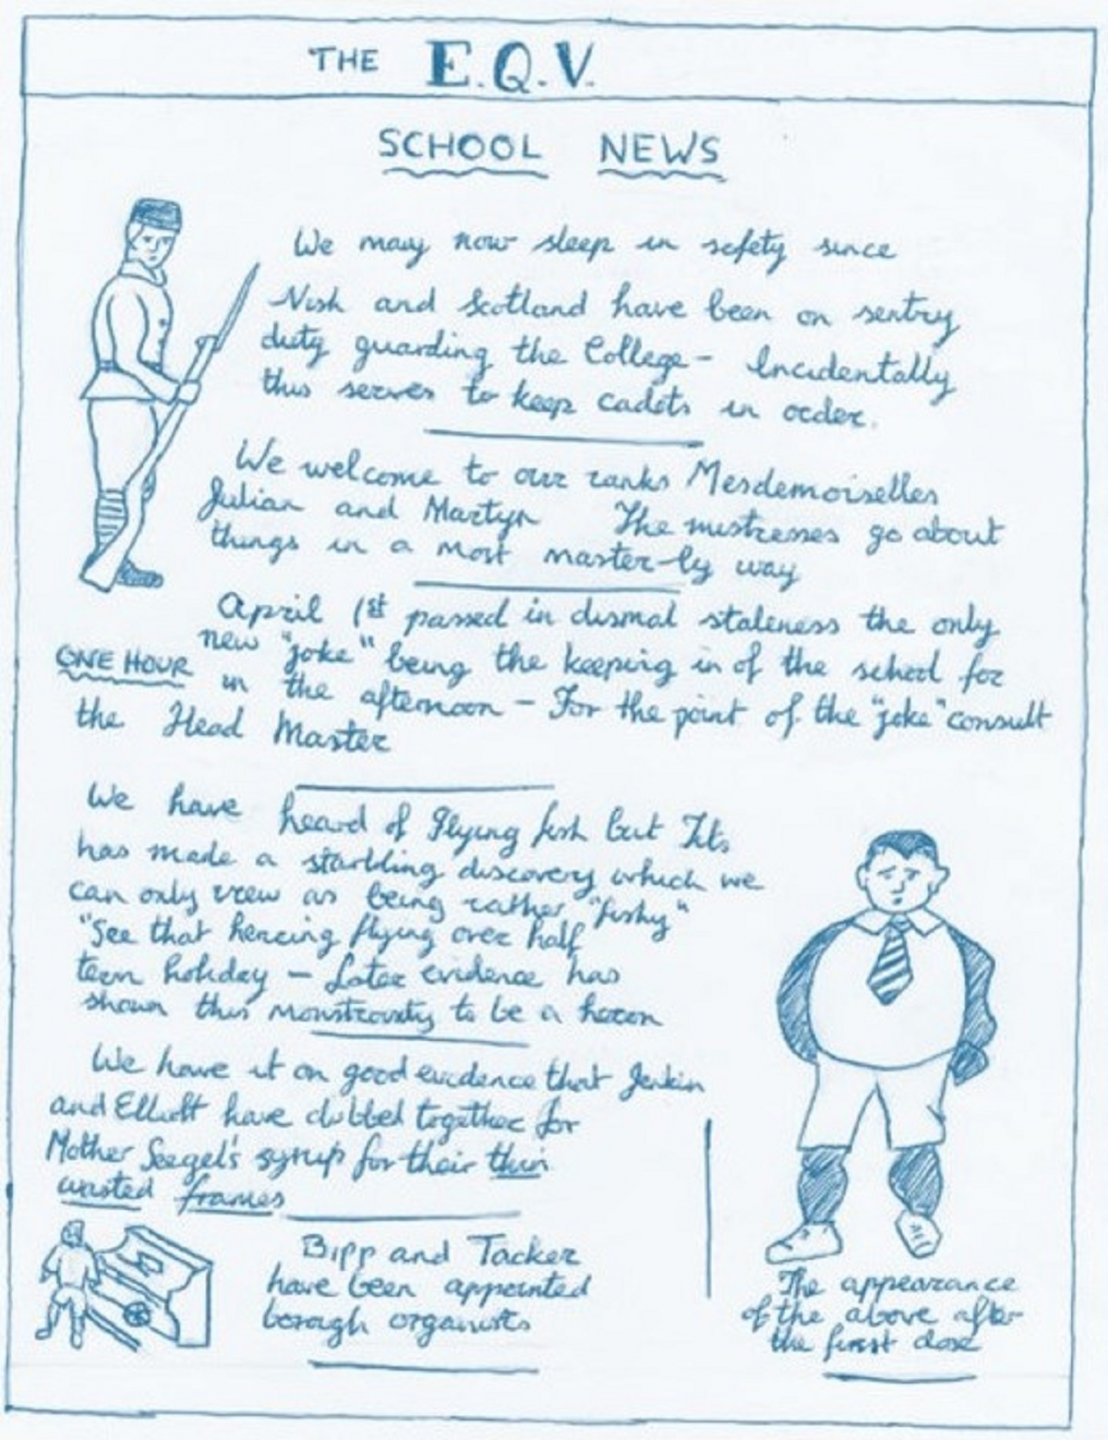 THE E.Q.V.
SCHOOL NEWS
We may now sleep in safety since
Nish and Scotland have been on sentry
duty guarding the College - Incidentally
this serves to keep cadets in order.
We welcome to our ranks Mesdemoiselles
Julian and Martyn The mistresses go about
things in a most master-ly way
April 1st passed in dismal staleness the only
new "joke" being the keeping in of the school for
ONE HOUR in the afternoon - For the point of the "joke" consult
the Head Master
We have heard of flying fish but Tits
has made a startling discovery which we
can only view as being rather "fishy"
"See that herring flying over half
term holiday - Later evidence has
shown this monstrosity to be a heron
We have it on good evidence that Jenkin
and Elliott have clubbed together for
Mother Seegel's syrup for their thin
wasted frames
Bipp and Tacker
have been appointed
borough organists
The appearance
of the above after
the first dose